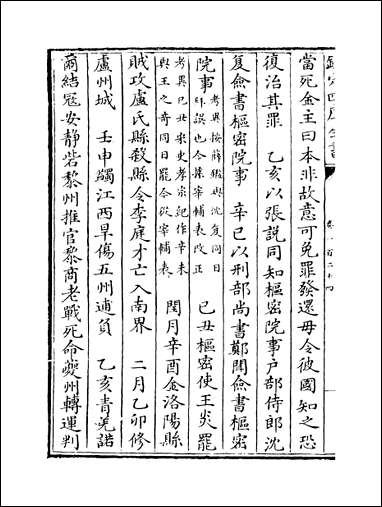 欽定四庫全書
當死金主曰本非故意可免罪發還毋令彼國知之恐
復治其罪　乙亥以張說同知樞密院事户部侍郎沈
夐僉書樞密院事　辛巳以刑部尚書鄭聞僉書樞密
院事　考異按薛鑑與沈夐同日拜誤也今㨿宰輔表改正　己丑樞密使王炎罷
考異己丑宋史孝宗紀作辛未與王之奇同日罷今從宰輔表　閏月辛酉金洛陽縣
賊攻盧氏縣殺縣令李庭才亡入南界　二月乙卯修
廬州城　壬申蠲江西旱傷五州逋負　乙亥青羌諾
爾結冦安静砦黎州推官黎商老戰死命夔州轉運判